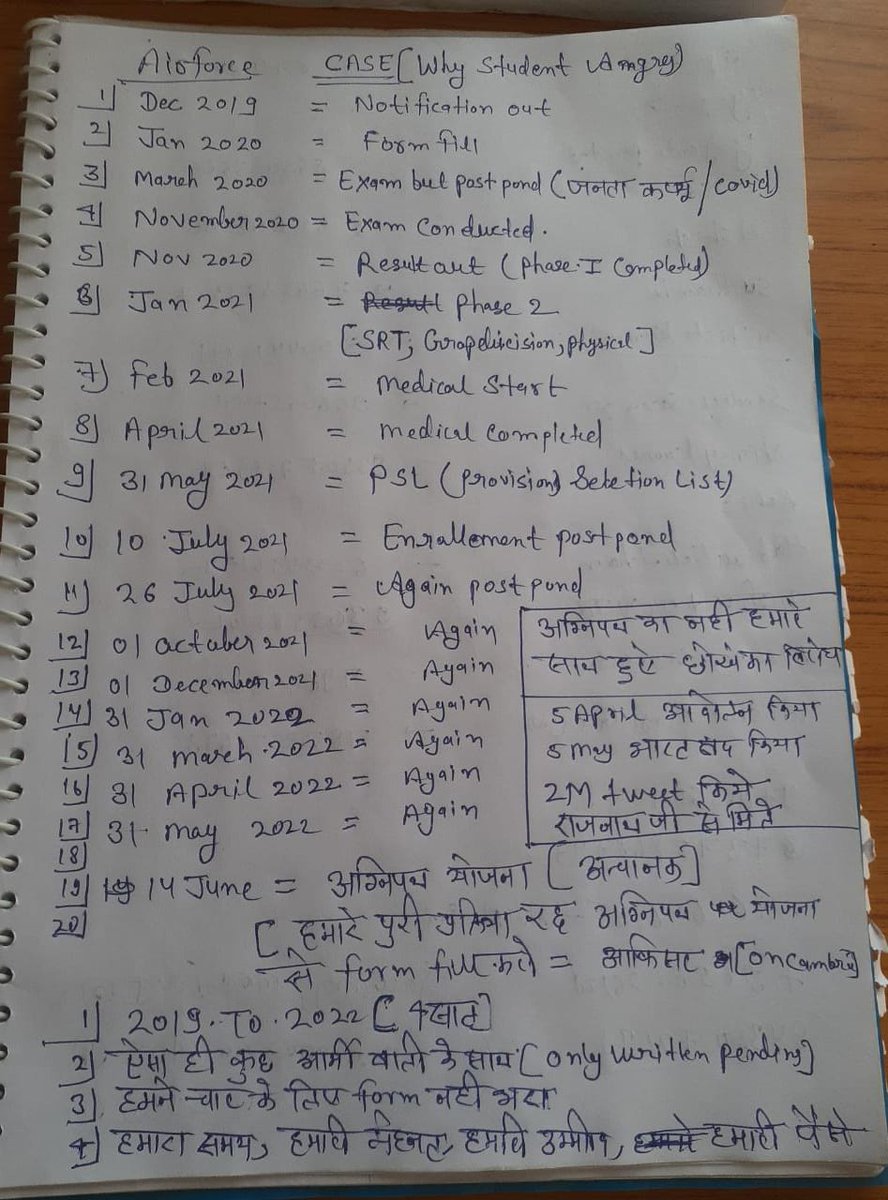 Airforce CASE [Why Student Angry)
1] Dec 2019 = Notification out
2] Jan 2020 = Form fill
3] March 2020 = Exam but post pond (जनता कर्फ्यू / covid)
4] November 2020 = Exam Conducted.
5] Nov 2020 = Result out (Phase-I Completed)
6] Jan 2021 = Result Phase 2
[SRT, Gropdiscision, physical]
7] Feb 2021 = Medical Start
8] April 2021 = Medical Completed
9] 31 May 2021 = PSL (Provision) Seletion List)
10] 10 July 2021 = Enrallement post pond
11] 26 July 2021 = Again post pond
12] 01 October 2021 = Again
13] 01 December 2021 = Again
14] 31 Jan 2022 = Again
15] 31 March 2022 = Again
16] 31 April 2022 = Again
17] 31 May 2022 = Again
अग्निपथ का नही हमारे
साथ हुऐ धोखे का विरोध
5 April आंदोलन किया
5 may भारत बंद किया
2M tweet किये
राजनाथ जी से मिले
18]
19] 14 June = अग्निपथ योजना [अचानक]
20]
[हमारे पुरी प्रक्रिया रद्द अग्निपथ योजना
से form fill करो =
1] 2019 To 2022 [4 साल]
2] ऐसा ही कुछ आर्मी वालो के साथ [only written pending)
3] हमने चार के लिए form नही भरा
4] हमारा समय, हमारी मेहनत, हमारी उम्मीद, हमारी पैसे